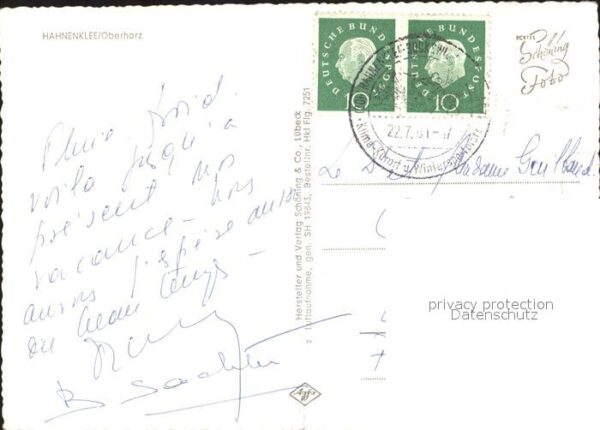 HAHNENKLEE/Oberharz
DEUTSCHE BUNDESPOST
10
DEUTSCHE BUNDESPOST
10
22.7.61-17
Klima-Kurort u. Wintersportplatz
ECHTES
Schöning
Foto
Pluie, froid.
voilà jusqu'à
présent nos
vacances - nous
aurons j'espère aussi
du beau temps -
Hersteller und Verlag Schöning & Co., Lübeck
Luftaufnahme, gen. SH 19843, Bestellnr. Hkl Flg. 7251
Le Dr et Madame
privacy protection
Datenschutz
Agfa